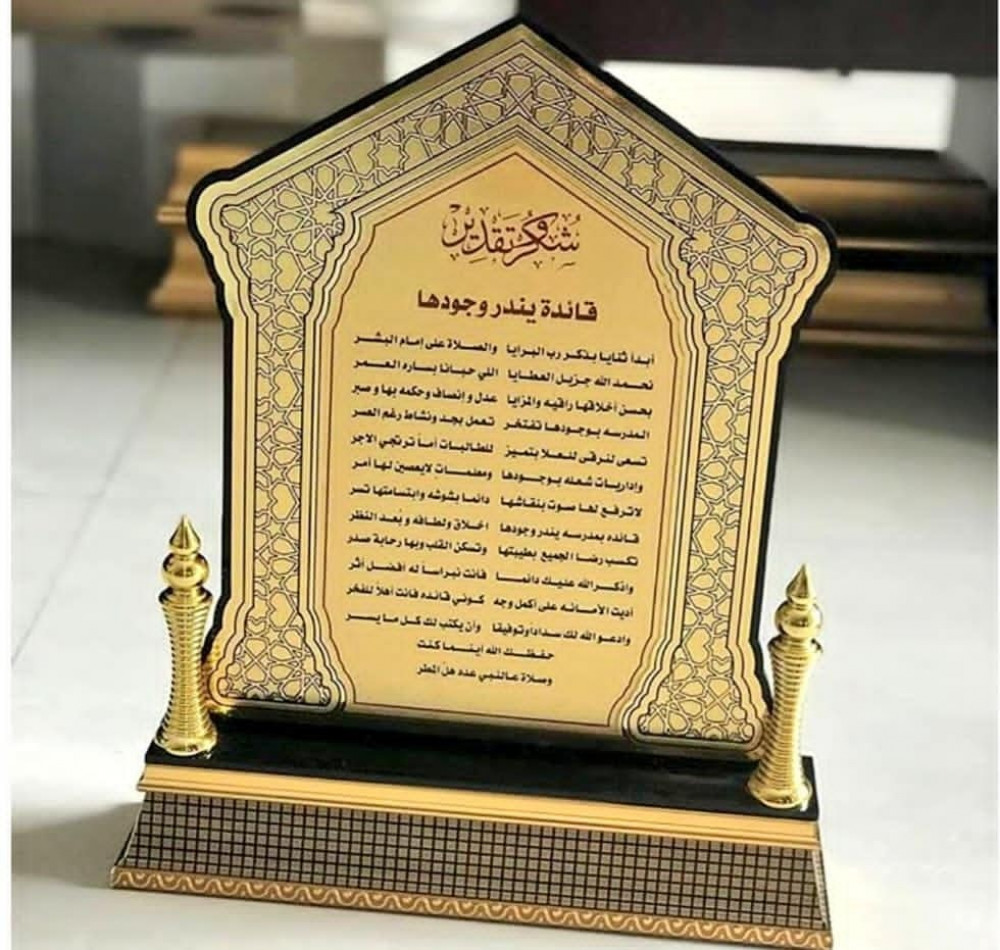 شكر وتقدير
قائدة يندر وجودها
أبدأ ثنايا بذكر رب البرايا والصلاة على إمام البشر
نحمد الله جزيل العطايا اللي حبانا بساره العمر
بحسن أخلاقها راقيه والمزايا عدل وإنصاف وحكمه بها وصبر
المدرسه بوجودها تفتخر تعمل بجد ونشاط رغم العسر
تسعى لترقى للعلا بتميز للطالبات أماً ترتجي الاجر
وإداريات شعله بوجودها ومعلمات لايعصين لها أمر
لاترفع لها صوت بنقاشها دائما بشوشه وابتسامتها تسر
قائده بمدرسه يندر وجودها اخلاق ولطافه وبعد النظر
تكسب رضا الجميع بطيبتها وتسكن القلب وبها رحابة صدر
واذكر الله عليك دائما فأنت نبراساً له افضل أثر
أديت الأمانه على أكمل وجه كوني قائده فأنت أهلاً للفخر
وادعو الله لك سداداً وتوفيقا وأن يكتب لك كل ما يسر
حفظك الله أينما كنت
وصلاة عالنبي عدد هل المطر